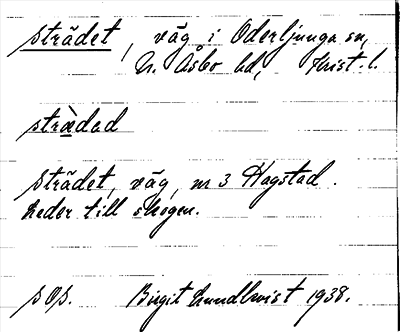 strädet, väg i Oderljunga sn,
N. Åsbo hd, Krist. l.
strädad
strädet, väg, nr 3 Hagstad.
Leder till skogen.
s Os. Birgit Lundkvist 1938.